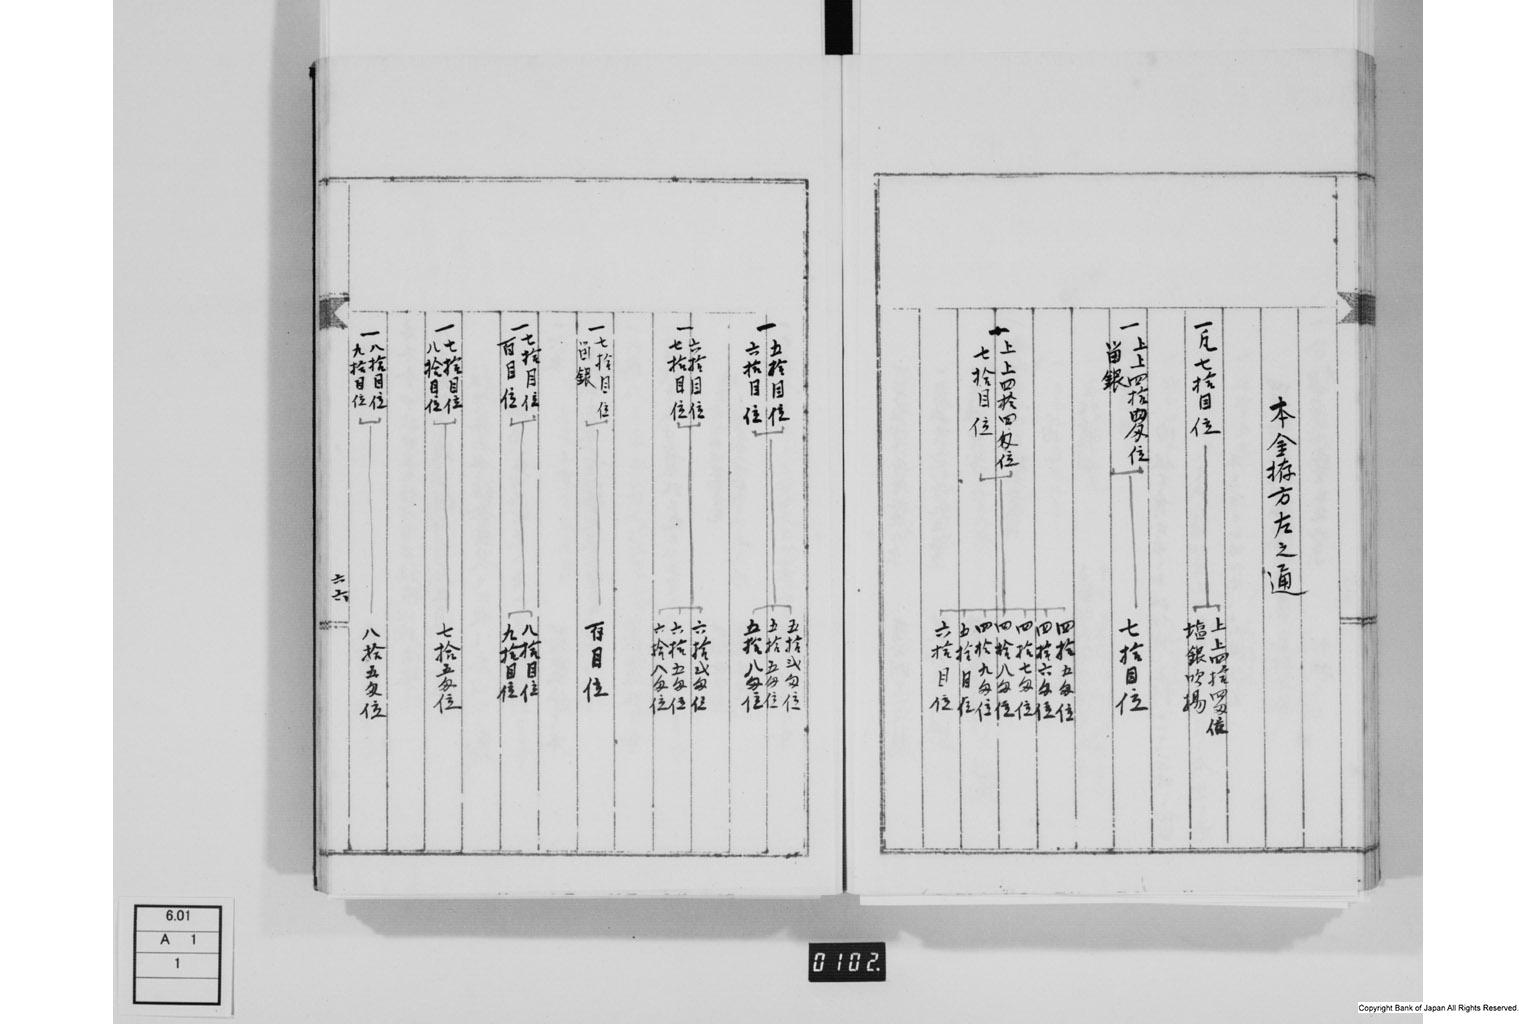 本金拵方左之通
一凡七拾目位
上上四拾四匁位
塩銀吹揚
一上上四拾四匁位
留銀
七拾目位
一上上四拾四匁位
七拾目位
四拾五匁位
四拾六匁位
四拾七匁位
四拾八匁位
四拾九匁位
五拾目位
六拾目位
一五拾目位
六拾目位
五拾弐匁位
五拾五匁位
五拾八匁位
一六拾目位
七拾目位
六拾弐匁位
六拾五匁位
六拾八匁位
一七拾目位
留銀
百目位
一七拾目位
百目位
八拾目位
九拾目位
一七拾目位
八拾目位
七拾五匁位
一八拾目位
九拾目位
八拾五匁位
6.01
A 1
1
0102.
Copyright Bank of Japan All Rights Reserved.